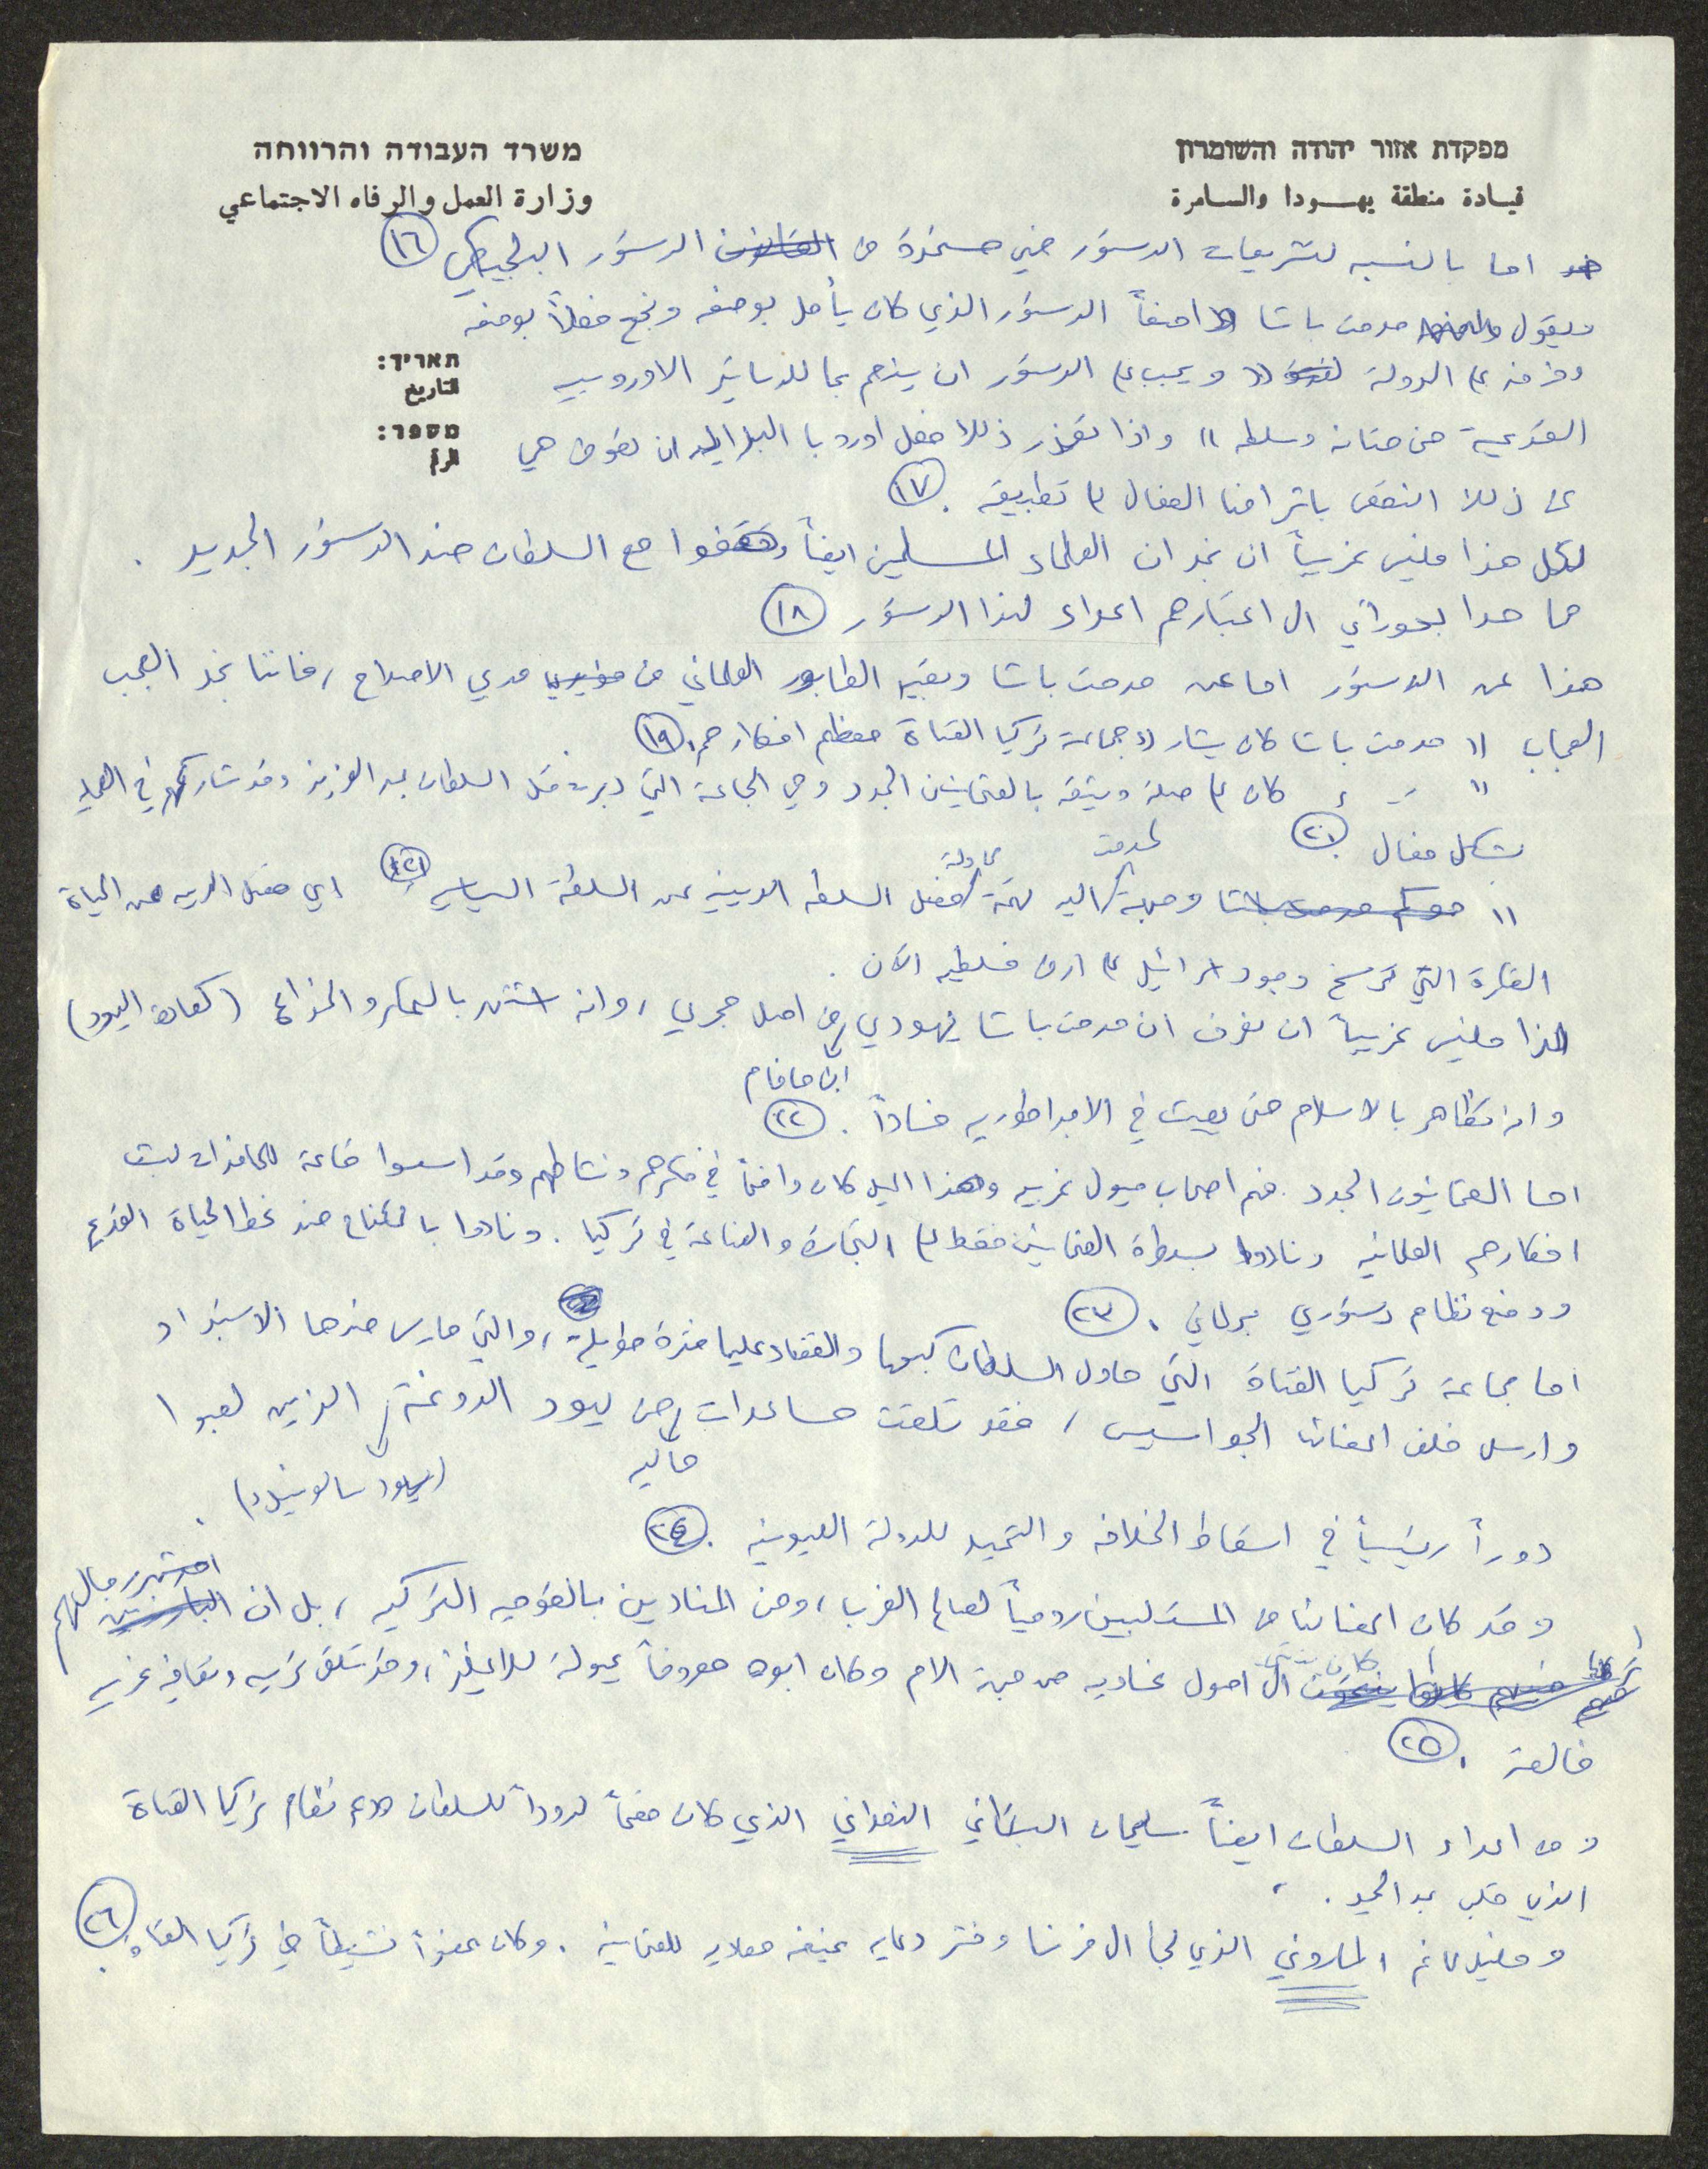 מפקדת אזור יהודה והשומרון
قيادة منطقة يهودا والسامرة
משרד העבודה והרווחה
وزارة العمل والرفاه الاجتماعي
תאריך:
التاريخ
מספר:
الرقم
اما بالنسبه لتشريعات الدستور فهي مستمدة من الدستور البلجيكي (١٦)
ويقول مدحت باشا واصفاً الدستور الذي كان يأمل بوضعه ونجح فعلاً بوضعه
وفرضه على الدولة (( ويجب على الدستور ان يزحم بما للدساتير الاوروبيه
القديمة من متانه وسلطه )) واذا تعذر ذلك فعلى اوروبا ان تعوض هي
عن ذلك النقص باشرافنا الفعال على تطبيقه . (١٧)
لكل هذا فليس غريباً ان نجد ان العلماء المسلمين ايضاً وقفوا مع السلطان ضد الدستور الجديد .
مما حدا الى اعتبارهم اعداء لهذا الدستور (١٨)
هذا عن الدستور اما عن مدحت باشا وبقية الطابور العلماني من مدعي الاصلاح ، فاننا نجد العجب
العجاب )) مدحت باشا كان يشارك جماعة تركيا الفتاة معظم افكارهم . (١٩)
)) كان على صلة وثيقه بالعثمانيين الجدد وهي الجماعة التي دبرت قتل السلطان عبد العزيز وقد شاركهم في العمليه
بشكل فعال . (٢٠)
)) وجهت اليه لمدحت تهمة محاولة فصل السلطه الدينيه عن السلطة السياسيه (٢١) اي فصل الدين عن الحياة
الفكرة التي ترسخ وجود اسرائيل على ارض فلسطين الآن .
لهذا فليس غريباً ان نعرف ان مدحت باشا يهودي ابن حاخام من اصل مجري ، وانه اشتهر بالمكر والخداع (كعادة اليهود)
وانه تظاهر بالاسلام حتى يعيث في الامبراطوريه فساداً . (٢٢)
اما العثمانيون الجدد . فهم اصحاب ميول غربيه وهذا الميل كان واضحاً في فكرهم ونشاطهم وقد اسسوا قاعة للمحاضرات لبث
افكارهم العلمانيه ونادوا بسيطرة العثمانيين فقط على التجارة والصناعة في تركيا . ونادوا بالكفاح ضد نمط الحياة القديم
ووضع نظام دستوري برلماني . (٢٣)
اما جماعة تركيا الفتاة التي حاول السلطان كبتها والقضاء عليها فترة طويلة ، والتي مارس ضدها الاستبداد
وارسل خلف اعضائها الجواسيس ، فقد تلقت مساعدات ماليه من يهود الدونمة (يهود سالونيك) الذين لعبوا
دوراً رئيسياً في اسقاط الخلافه والتمهيد للدولة الصهيونيه . (٢٤)
وقد كان اعضائنا من المستلبين روحياً لعالم الغرب ، ومن المنادين بالقوميه التركيه ، بل ان اشهر رجالهم
كان ينتمي الى اصول من جهة الام وكان ابوه معروفاً بميوله للانجليز ، وقد تلقى تربيه وثقافيه غربيه
خالصة . (٢٥)
ومن اعداء السلطان ايضاً سليمان البستاني النصراني الذي كان خصماً لدوداً للسلطان ودعم نظام تركيا الفتاة
الذي خلف عبد الحميد .
وخليل غانم الماروني الذي لجأ الى فرنسا وفتح دعايه عنيفه معاديه للعثمانيه . وكان عضواً نشيطاً في تركيا الفتاة . (٢٦)